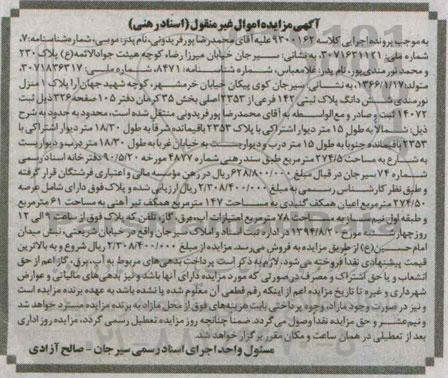 آگهی مزایده اموال غیر منقول (اسناد رهنی)
به موجب پرونده اجرایی کلاسه ۹۳۰۰۱۶۲ علیه آقای محمدرضا پورفریدونی، نام پدر: موسی، شماره شناسنامه: ۷،
شماره ملی: ۳۰۷۱۶۳۱۱۲۱، به نشانی: سیرجان خیابان میرزا رضا، کوچه هیئت جوادالائمه(ع) پلاک ۲۳۰
و محمد نورمندی پور، نام پدر: غلامعباس، شماره شناسنامه: ۸۴۷۱، شماره ملی: ۳۰۷۱۸۳۶۳۱۷،
متولد: ۱۳۶۶/۱/۱۷، به نشانی: سیرجان کوی پیکان خیابان خرمشهر، کوچه شهید جهان آرا پلاک ۱ منزل
نورمندی شش دانگ پلاک ثبتی ۱۴۲ فرعی از ۲۳۵۳ اصلی بخش ۳۵ کرمان دفتر ۱۰۵ صفحه ۳۲۶ ذیل ثبت
۱۴۰۷۲ ثبت و صادر و مع الواسطه به آقای محمدرضا پور فریدونی منتقل شده است، محدود به حدود به شرح
ذیل: شمالا به طول ۱۵ متر دیوار اشتراکی با پلاک ۲۳۵۳ باقیمانده شرقا به طول ۱۸/۳۰ متر دیوار اشتراکی با
۲۳۵۳ باقیمانده جنوبا به طول ۱۵ متر درب و دیواریست به خیابان غربا به طول ۱۸/۳۰ متر درب و دیواریست
به شارع به مساحت ۲۷۴/۵ مترمربع طبق سند رهنی شماره ۴۸۷۷ مورخه ۹۰/۵/۲۰ دفترخانه اسناد رسمی
شماره ۷۴ سیرجان در قبال مبلغ ۶۲۸/۸۰۰/۰۰۰ ریال در رهن مؤسسه مالی و اعتباری فرشتگان قرار گرفته
و طبق نظر کارشناس رسمی به مبلغ ۲/۳۰۸/۴۰۰/۰۰۰ ریال ارزیابی شده و پلاک فوق دارای شامل عرصه
۲۷۴/۵۰ مترمربع اعیان همکف گنبدی به مساحت ۱۴۷ مترمربع همکف تیر آهنی به مساحت ۶۱ مترمربع
و طبقه اول نیز به مساحت ۷۸ مترمربع امتیازات آب، برق، گاز، تلفن که پلاک فوق از ساعت ۹ الی ۱۲
روز چهارشنبه مورخ ۱۳۹۴/۸/۲۰ در اداره ثبت اسناد و املاک سیرجان واقع در خیابان شریعتی، نبش میدان
امام حسن(ع) از طریق مزایده به فروش می رسد. مزایده از مبلغ ۲/۳۰۸/۴۰۰/۰۰۰ ریال شروع و به بالاترین
قیمت پیشنهادی نقداً فروخته می شود، لازم به ذکر است پرداخت بدهی های مربوط به آب، برق، گاز اعم از حق
انشعاب و یا حق اشتراک و مصرف در صورتی که مورد مزایده دارای آنها باشد و نیز بدهی های مالیاتی و عوارض
شهرداری و غیره تا تاریخ مزایده اعم از اینکه رقم قطعی آن معلوم شده یا نشده باشد به عهده برنده مزایده است
و نیز در صورت وجود مازاد، وجوه پرداختی بابت هزینه های فوق از محل مازاد به برنده مزایده مسترد خواهد شد
و نیم عشر و حق مزایده نقداً وصول می گردد. ضمناً چنانچه روز مزایده تعطیل رسمی گردد، مزایده روز اداری
بعد از تعطیلی در همان ساعت و مکان مقرر برگزار خواهد شد.
مسئول واحد اجرای اسناد رسمی سیرجان - صالح آزادی